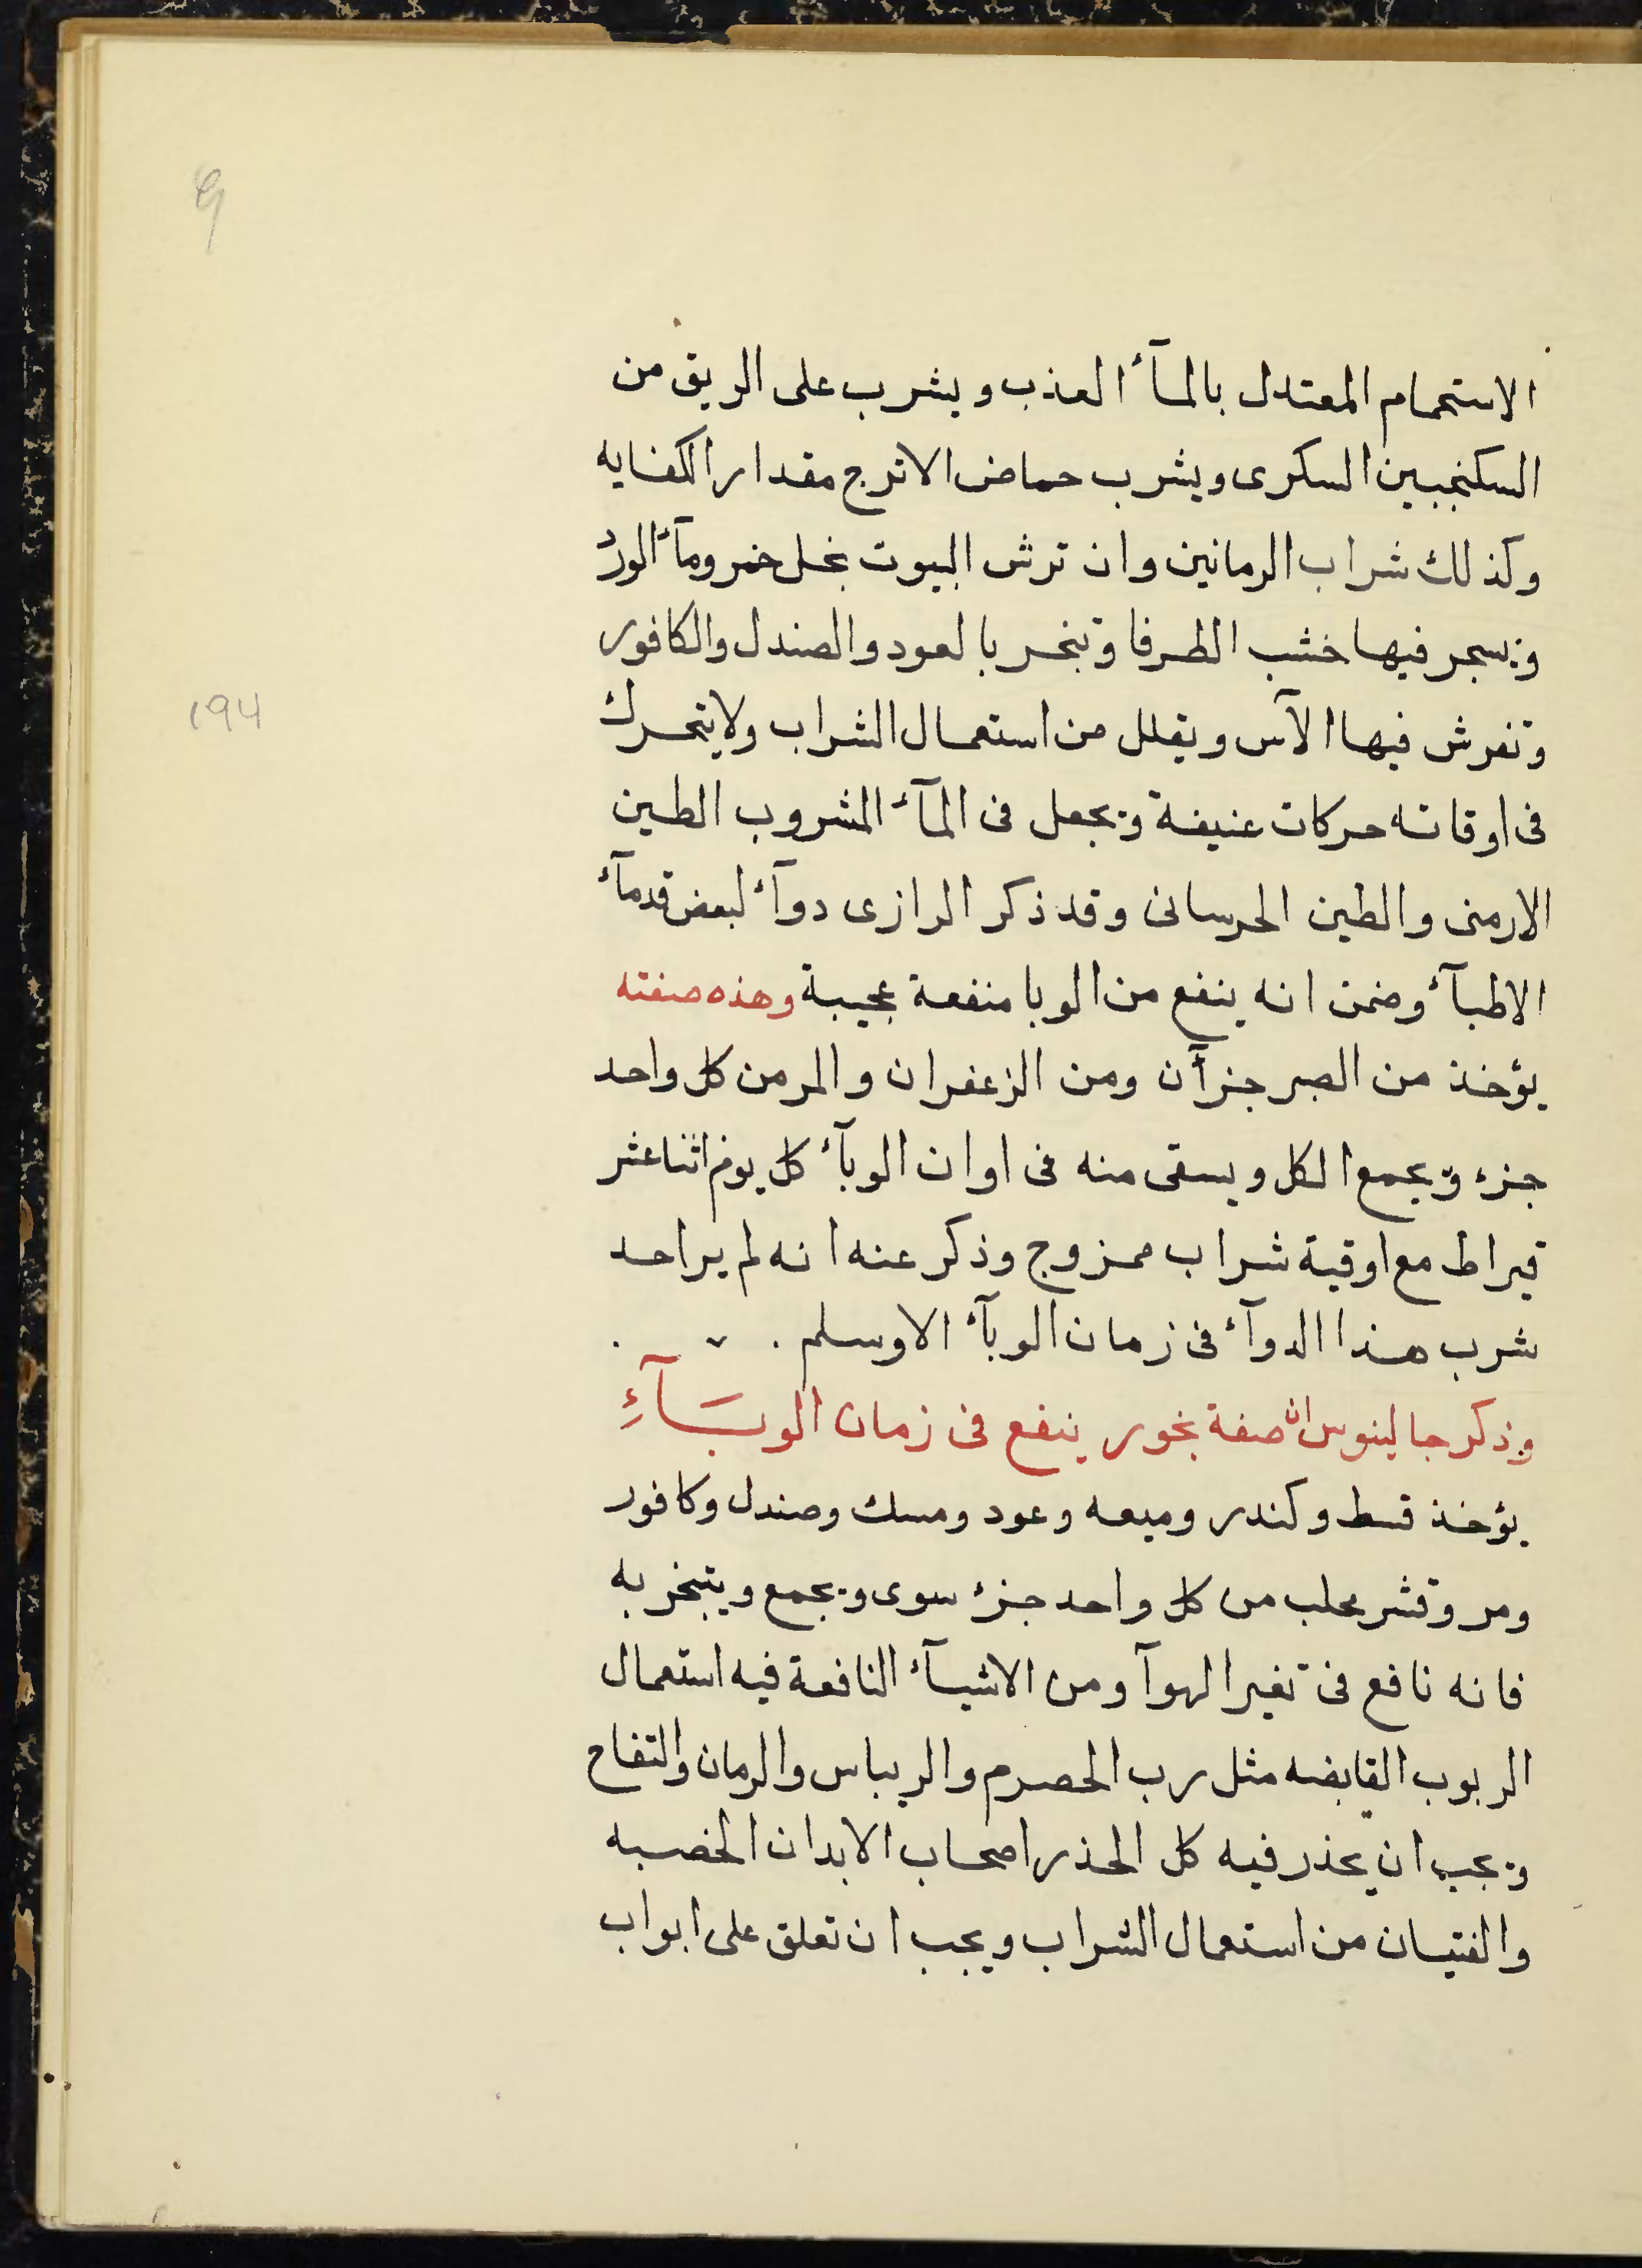 الاستحمام المعتدل بالمآء العذب ويشرب على الريق من
السكنجبين السكرى ويشرب حماض الاترج مقدار الكفايه
وكذلك شراب الرمانين وان ترش البيوت بخل خمر ومآء الورد
ويسجر فيها خشب الطرفا وتبخر بالعود والصندل والكافور
وتفرش فيها الآس ويقلل من استعمال الشراب ولا يتحرك
فى اوقاته حركات عنيفة ويجعل فى المآء المشروب الطين
الارمنى والطين الحرسانى وقد ذكر الرازى دوآء لبعض قدمآء
الاطبآء وضمن انه ينفع من الوبا منفعة عجيبة وهذه صفته
يؤخذ من الصبر جزآن ومن الزعفران والمر من كل واحد
جزء ويجمع الكل ويسقى منه فى اوان الوبآء كل يوم اثنا عشر
قيراط مع اوقية شراب ممزوج وذكر عنه انه لم ير احد
شرب هذا الدوآء فى زمان الوبآء الا وسلم
وذكر جالينوس ان صفة بخور ينفع فى زمان الوبَآءِ
يؤخذ قسط وكندر وميعه وعود ومسك وصندل وكافور
ومر وقشر محلب من كل واحد جزء سوى ويجمع ويتبخر به
فانه نافع فى تغير الهوآ ومن الاشيآء النافعة فيه استعمال
الربوب القابضه مثل رب الحصرم والريباس والرمان والتفاح
ويجب ان يحذر فيه كل الحذر اصحاب الابدان الخصبه
والفتيان من استعمال الشراب ويجب ان تعلق على ابواب
194